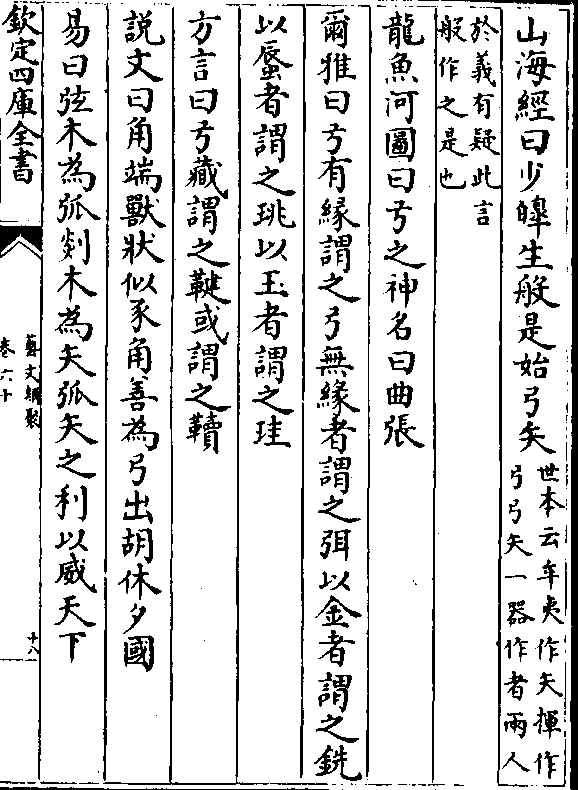 山海經曰少皥生般是始弓矢世本云牟夷作矢揮作弓弓矢一器作者兩人
於義有疑此言般作之是也
龍魚河圖曰弓之神名曰曲張
爾雅曰弓有緣謂之弓無緣者謂之弭以金者謂之銑
以蜃者謂之珧以玉者謂之珪
方言曰弓藏謂之鞬或謂之韥
說文曰角端獸狀似豕角善為弓出胡休夕國
易曰弦木為弧剡木為矢弧矢之利以威天下
欽定四庫全書
藝文類聚
卷六十
十八